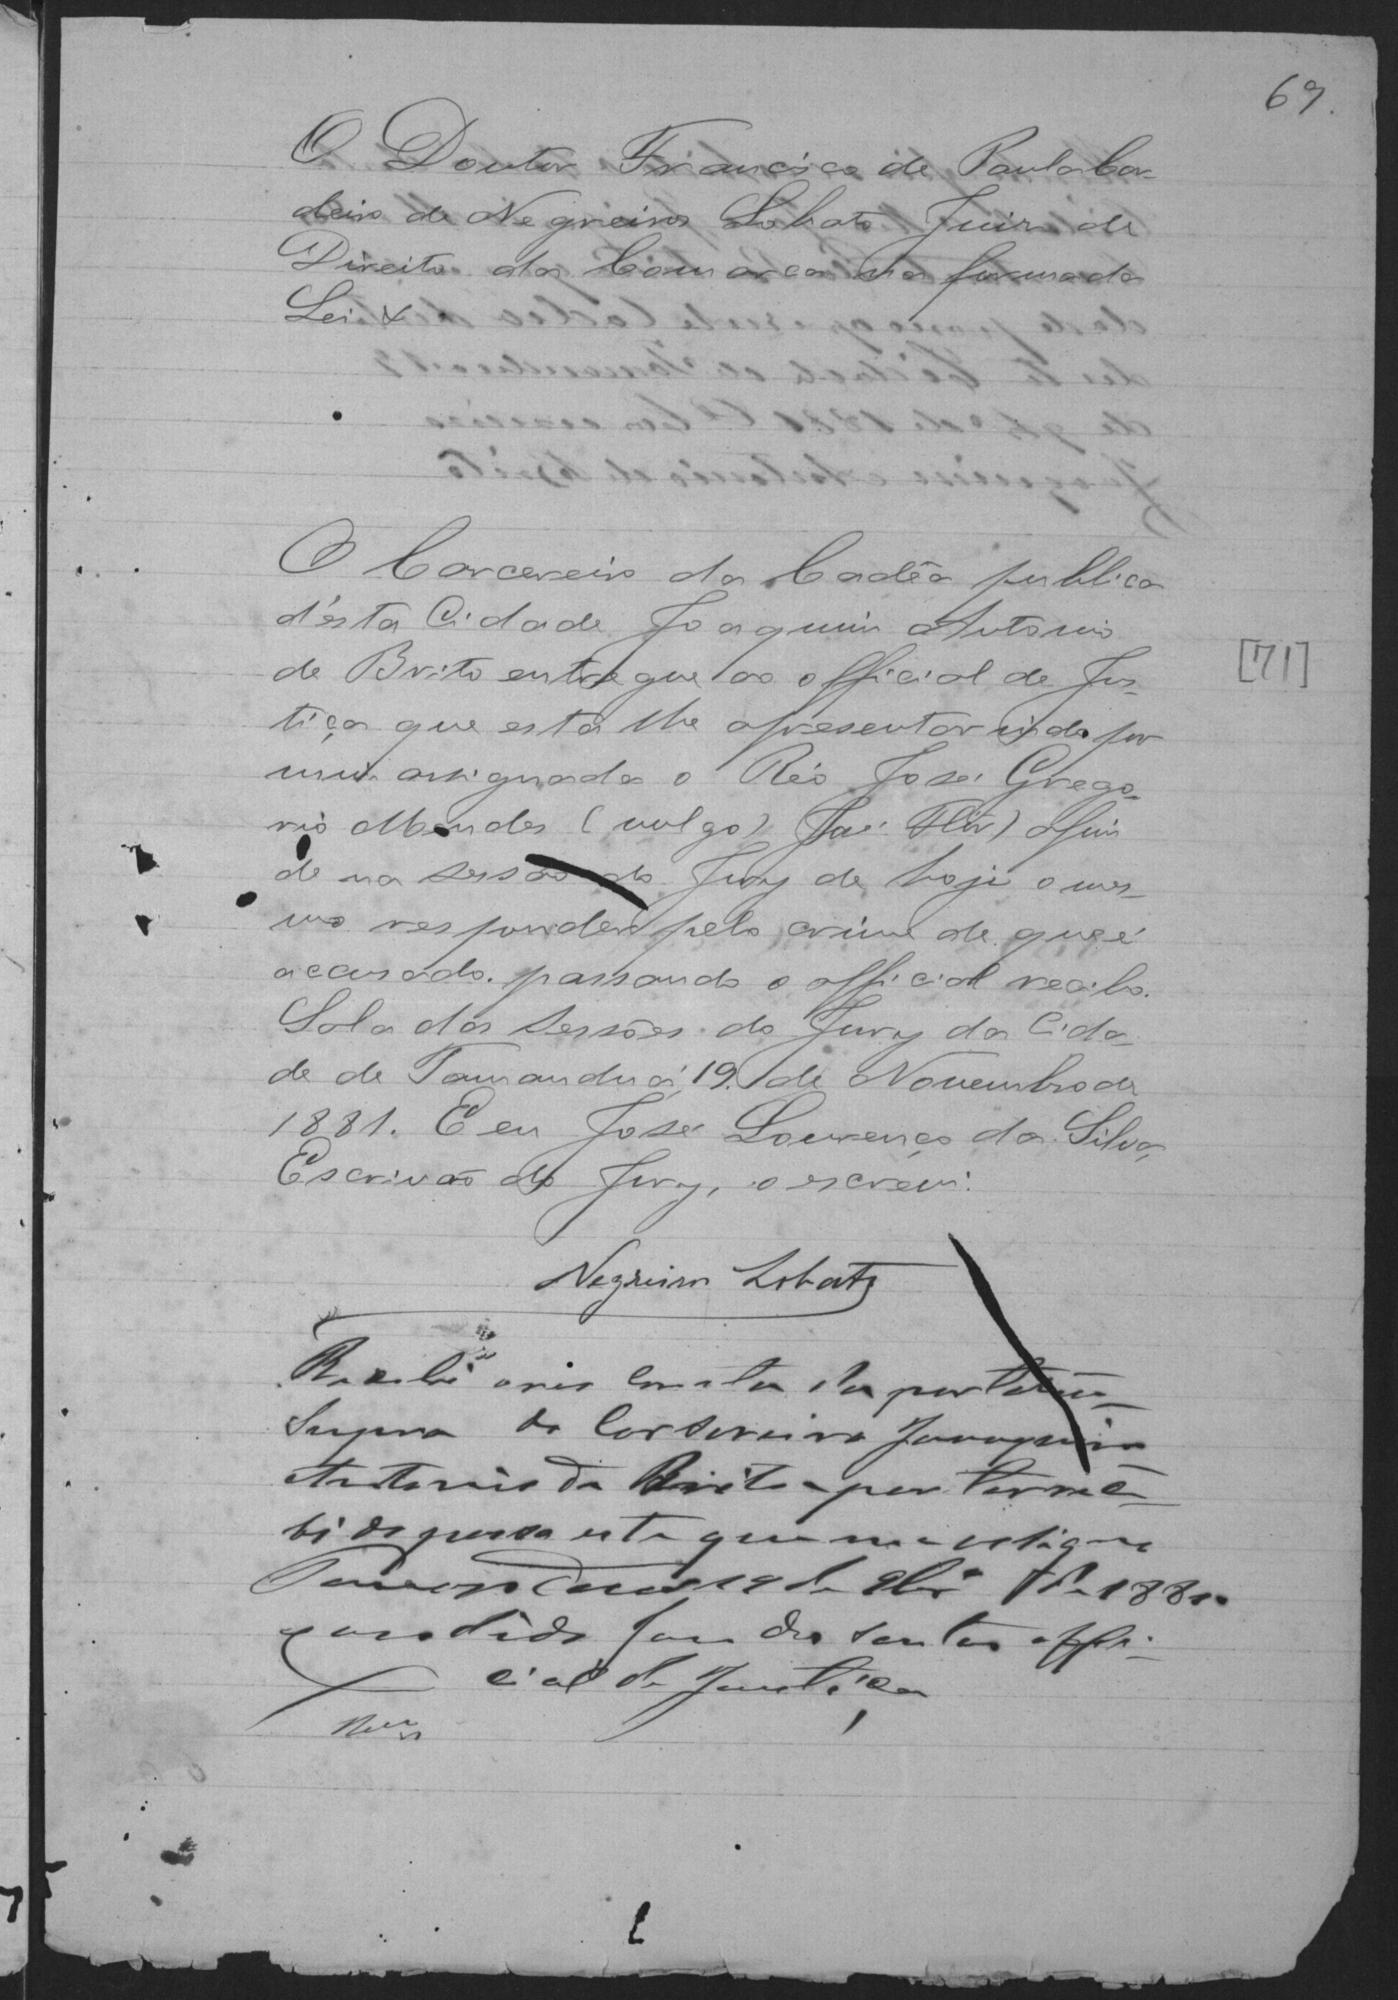 69.
O Doutor Francisco de Paula Cor-
deiro de Negreiros Lobato Juiz de
Direito da Comarca na forma da
Lei &
O Carcereiro da Cadêa publica
d'esta Cidade Joaquim Antonio
de Brito entregue ao official de Jus-
tiça que esta lhe apresentar indo por
mim assignada o Réo José Grego-
rio Mendes (vulgo) José Flôr) afim
de na sessão do Jury de hoje o mes-
mo responder pelo crime de que é
accusado. passando o official recibo.
Sala das Sessões do Jury da Cida-
de de Tamanduá, 19. de Novembro de
1881. E eu José Lourenço da Silva,
Escrivão do Jury, o escrevi.
[71]
Negreiros Lobato
Recebi o reo consta da portaria
Supra do Carsereiro Joaquim
Antonio de Brito e por ter rece-
bido passa este que me
19 de 9br.o de 1881.
José dos Santos offi-
cial de Justiça